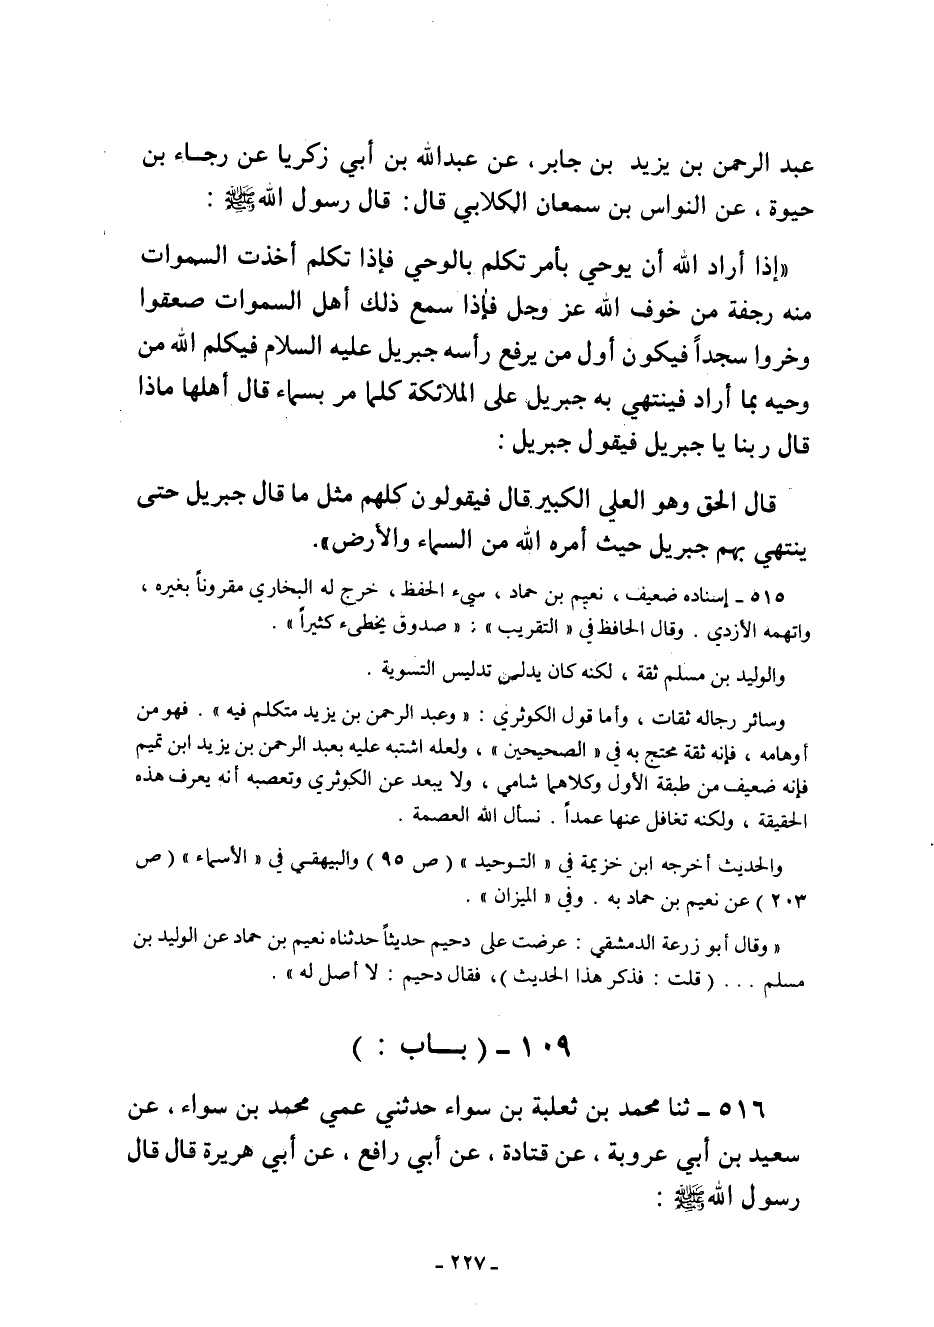 عبد الرحمن بن يزيد بن جابر، عن عبدالله بن أبي زكريا عن رجاء بن
حيوة، عن النواس بن سمعان الكلابي قال: قال رسول اللهﷺ:
«إذا أراد الله أن يوحي بأمر تكلم بالوحي فإذا تكلم أخذت السموات
منه رجفة من خوف الله عز وجل فإذا سمع ذلك أهل السموات صعقوا
وخروا سجداً فيكون أول من يرفع رأسه جبريل عليه السلام فيكلم الله من
وحيه بما أراد فينتهي به جبريل على الملائكة كلما مر بسماء قال أهلها ماذا
قال ربنا يا جبريل فيقول جبريل:
قال الحق وهو العلي الكبير قال فيقولون كلهم مثل ما قال جبريل حتى
ينتهي بهم جبريل حيث أمره الله من السماء والأرض».
٥١٥ ـ إسناده ضعيف، نعيم بن حماد، سيىء الحفظ، خرج له البخاري مقروناً بغيره،
واتهمه الأزدي. وقال الحافظ في «التقريب»: «صدوق يخطىء كثيراً».
والوليد بن مسلم ثقة، لكنه كان يدلس تدليس التسوية.
وسائر رجاله ثقات، وأما قول الكوثري: «وعبد الرحمن بن يزيد متكلم فيه». فهو من
أوهامه، فإنه ثقة محتج به في «الصحيحين»، ولعله اشتبه عليه بعبد الرحمن بن يزيد ابن تميم
فإنه ضعيف من طبقة الأول وكلاهما شامي، ولا يبعد عن الكوثري وتعصبه أنه يعرف هذه
الحقيقة، ولكنه تغافل عنها عمداً. نسأل الله العصمة.
والحديث أخرجه ابن خزيمة في «التوحيد» (ص ٩٥) والبيهقي في «الأسماء» (ص
٢٠٣) عن نعيم بن حماد به. وفي «الميزان».
«وقال أبو زرعة الدمشقي: عرضت على دحيم حديثاً حدثناه نعيم بن حماد عن الوليد بن
مسلم ... (قلت: فذكر هذا الحديث)، فقال دحيم: لا أصل له».
١٠٩ ـ (بـــاب:)
٥١٦ ـ ثنا محمد بن ثعلبة بن سواء حدثني عمي محمد بن سواء، عن
سعيد بن أبي عروبة، عن قتادة، عن أبي رافع، عن أبي هريرة قال قال
رسول اللهﷺ:
ـ ٢٢٧ ـ